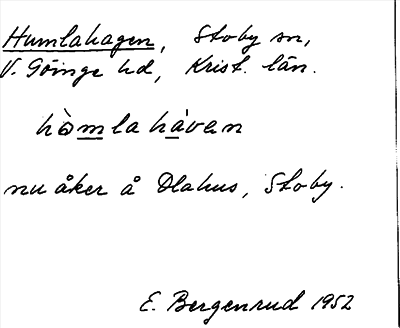 Humlahagen, Stoby sn,
V. Göinge hd, Krist. län.
hò̱mlahà̱van
nu åker å Dlahus, Stoby.
E. Bergenrud 1952